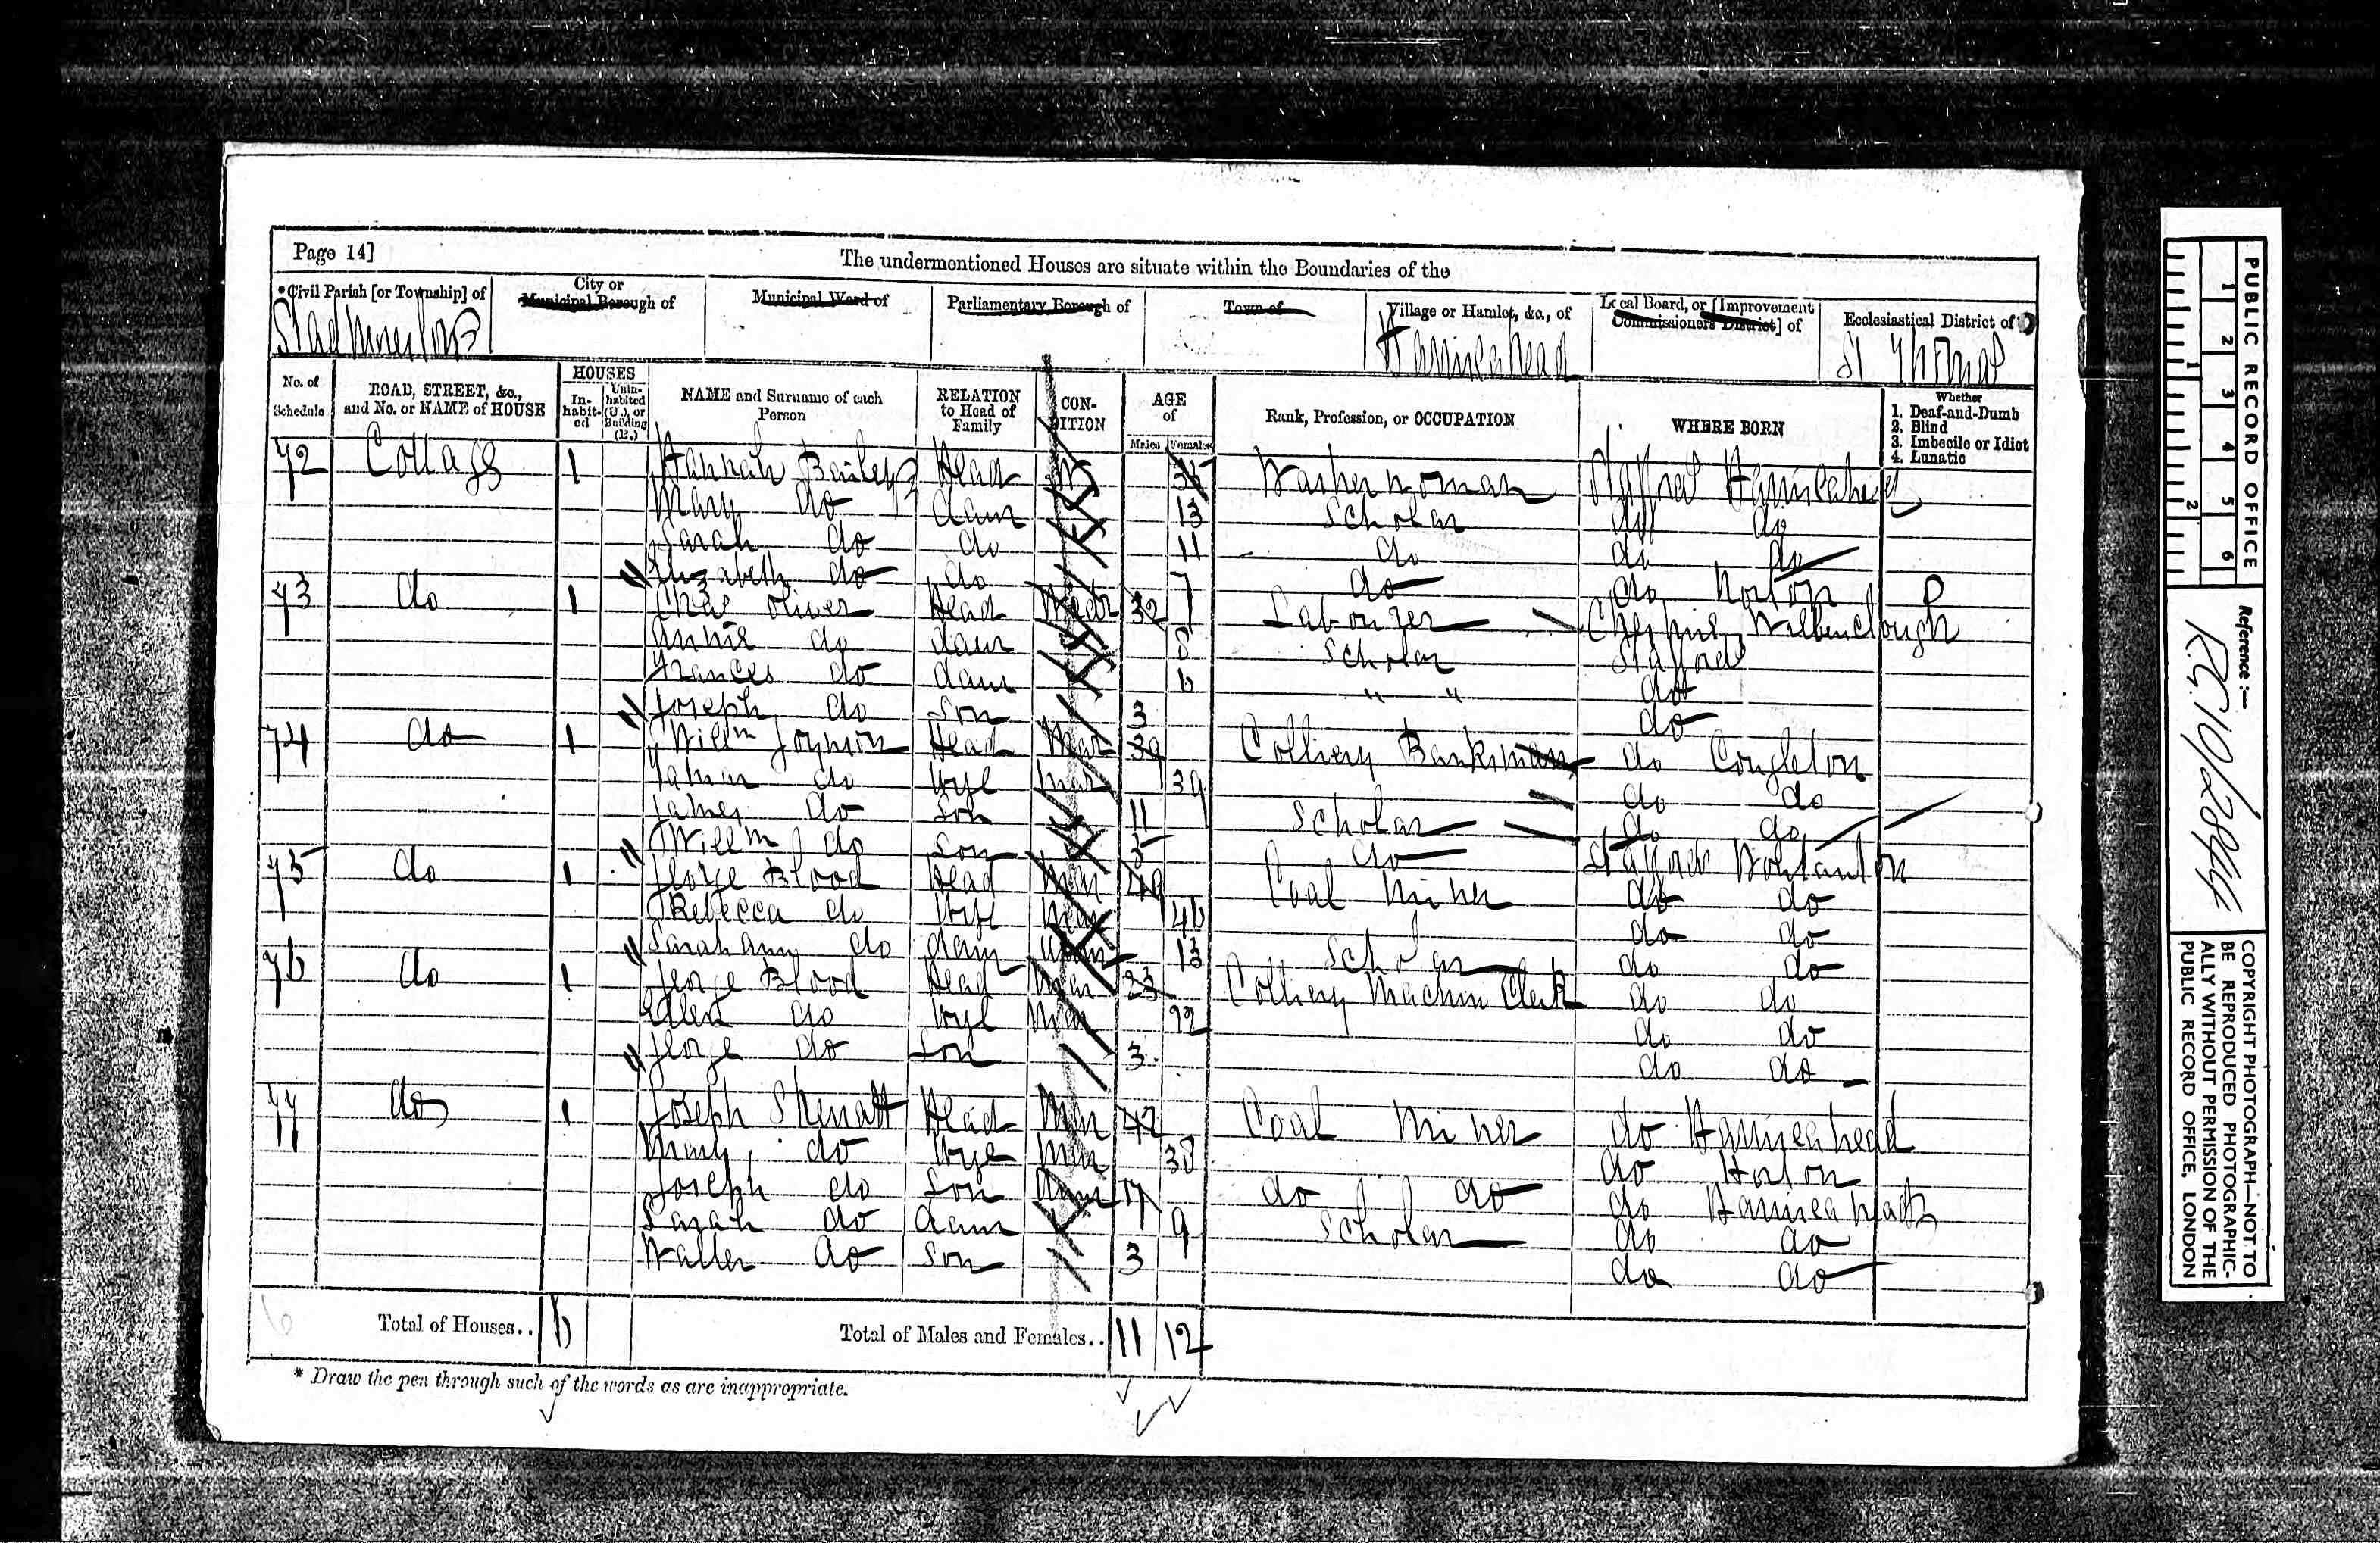 Page 14]
The undermentioned Houses are situate within the Boundaries of the
* Civil Parish [or Township] of
City or Municipal Borough of
Municipal Ward of
Parliamentary Borough of
Town of
Village or Hamlet, &c., of
Local Board, or [Improvement Commissioners District] of
Ecclesiastical District of
Harriseahead
St Thomas
No. of Schedule
ROAD, STREET, &c., and No. or NAME of HOUSE
HOUSES
In-habit-ed
Unin-habited (U.), or Building (B.)
NAME and Surname of each Person
RELATION to Head of Family
CON-DITION
AGE of
Males
Females
Rank, Profession, or OCCUPATION
WHERE BORN
Whether
1. Deaf-and-Dumb
2. Blind
3. Imbecile or Idiot
4. Lunatic
72 Cottage 1 Hannah Bailey Head W Washerwoman Stafford Harriseahead
Mary do daur 13 Scholar do do
Sarah do do 11 do do do
Elizabeth do do 7 do do Norton
73 do 1 Chas Oliver Head 32 Labourer Cheshire
Annie do daur 8 Scholar Stafford
Frances do daur 6 " " do
Joseph do Son 3 do
74 do 1 Willm Joynson Head Mar 39 Colliery Banksman do Congleton
do Wife Mar 39 do do
James do Son 11 Scholar do do
Willm do Son 5 do Stafford
75 do 1 George Blood Head Mar 49 Coal Miner do do
Rebecca do Wife Mar 46 do do
Sarah Ann do daur Unm 13 Scholar do do
76 do 1 George Blood Head Mar 23 Colliery Machin Clerk do do
Ellen do Wife Mar 22 do do
George do Son 3 do do
77 do 1 Joseph Sherratt Head Mar 42 Coal Miner do Harriseahead
Mary do Wife Mar 38 do Horton
Joseph do Son Unm 17 do do do Harriseahead
Sarah do daur 9 Scholar do do
Walter do Son 3 do do
Total of Houses.. 6
Total of Males and Females.. 11 12
* Draw the pen through such of the words as are inappropriate.
PUBLIC RECORD OFFICE
1 2 3 4 5 6
1 2
Reference :—
RG.10/2844
COPYRIGHT PHOTOGRAPH—NOT TO
BE REPRODUCED PHOTOGRAPHIC-
ALLY WITHOUT PERMISSION OF THE
PUBLIC RECORD OFFICE, LONDON